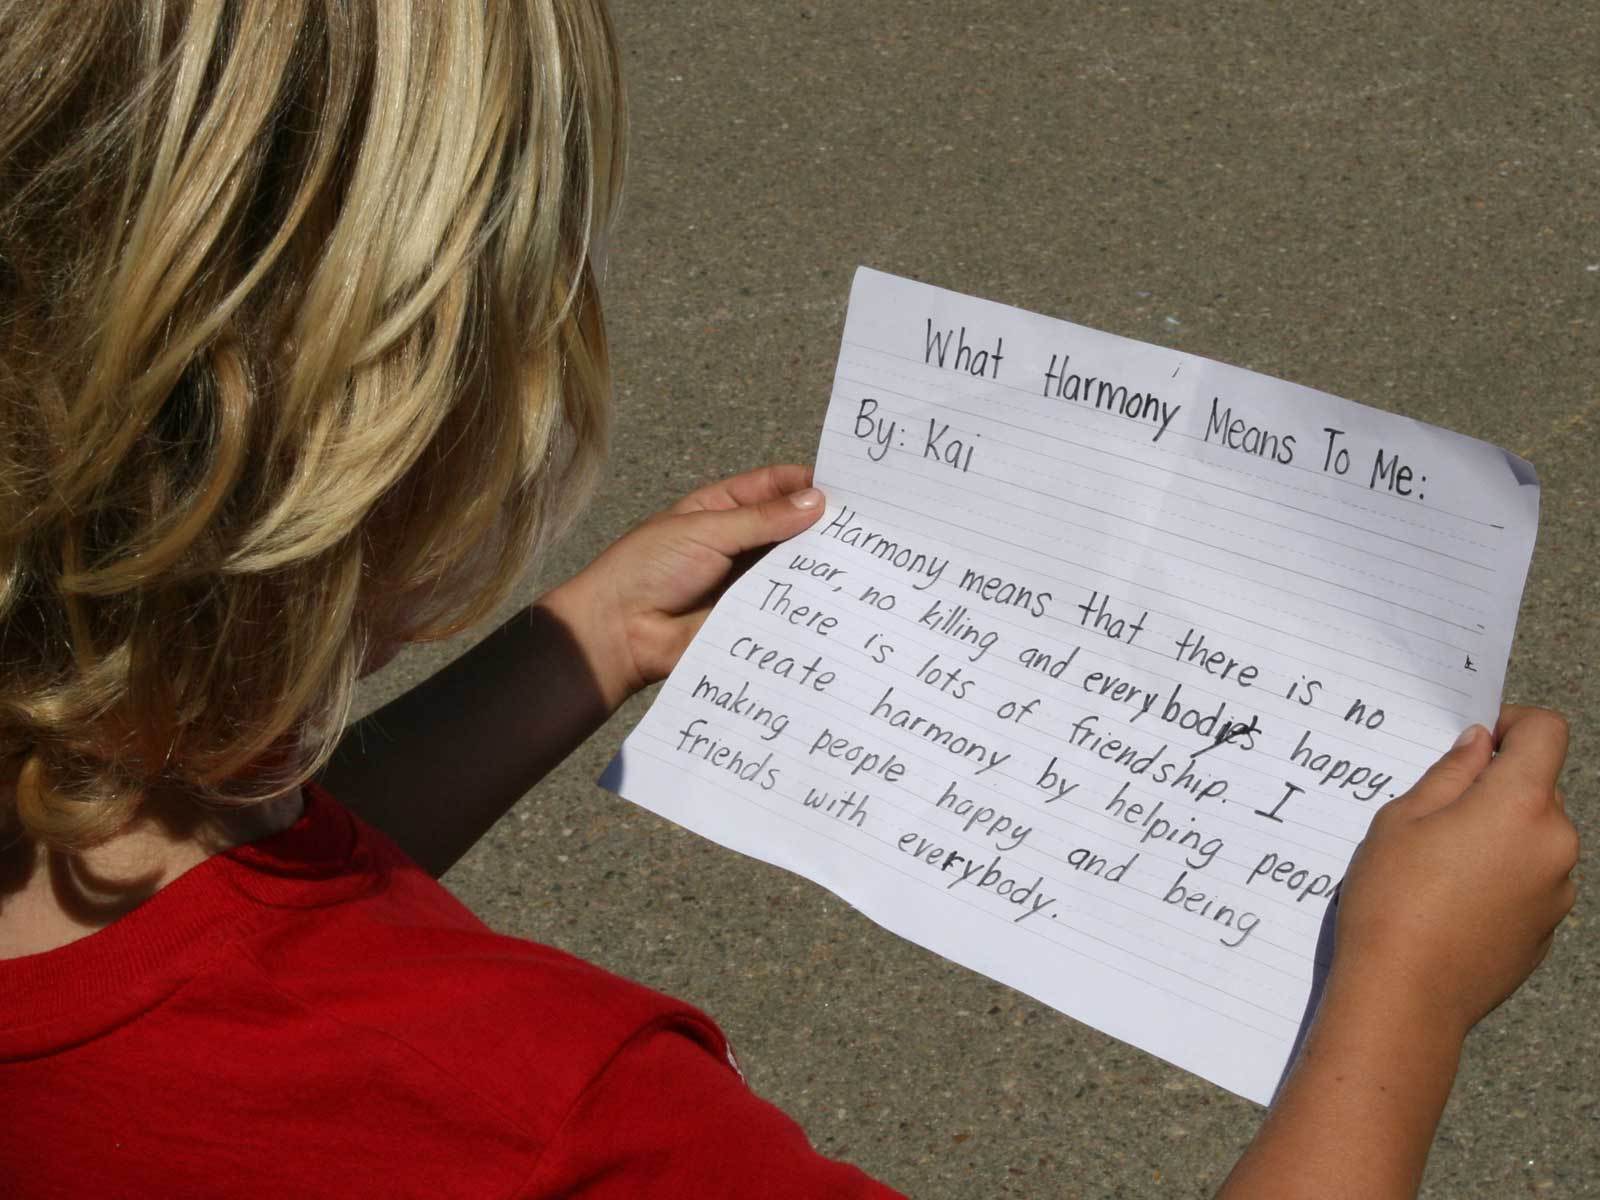 What Harmony Means To Me:
By: Kai
Harmony means that there is no
war, no killing and everybodies happy.
There is lots of friendship. I
create harmony by helping peopl
making people happy and being
friends with everybody.